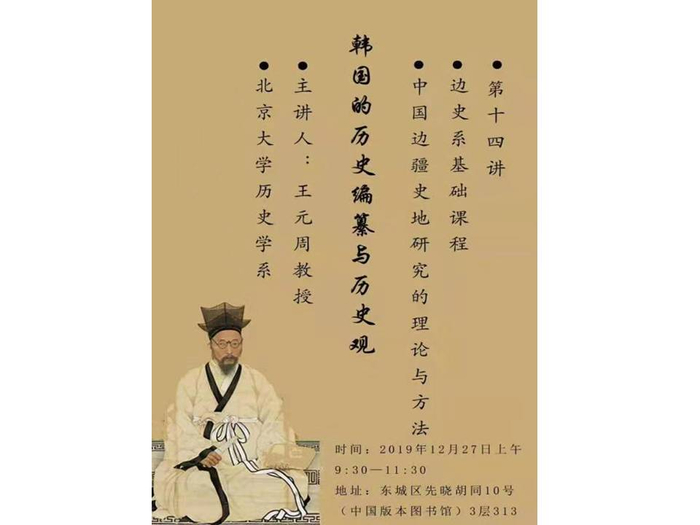 第十四讲
边史系基础课程
中国边疆史地研究的理论与方法
韩国的历史编纂与历史观
主讲人：王元周教授
北京大学历史学系
时间：2019年12月27日上午
9:30—11:30
地址：东城区先晓胡同10号
（中国版本图书馆）3层313